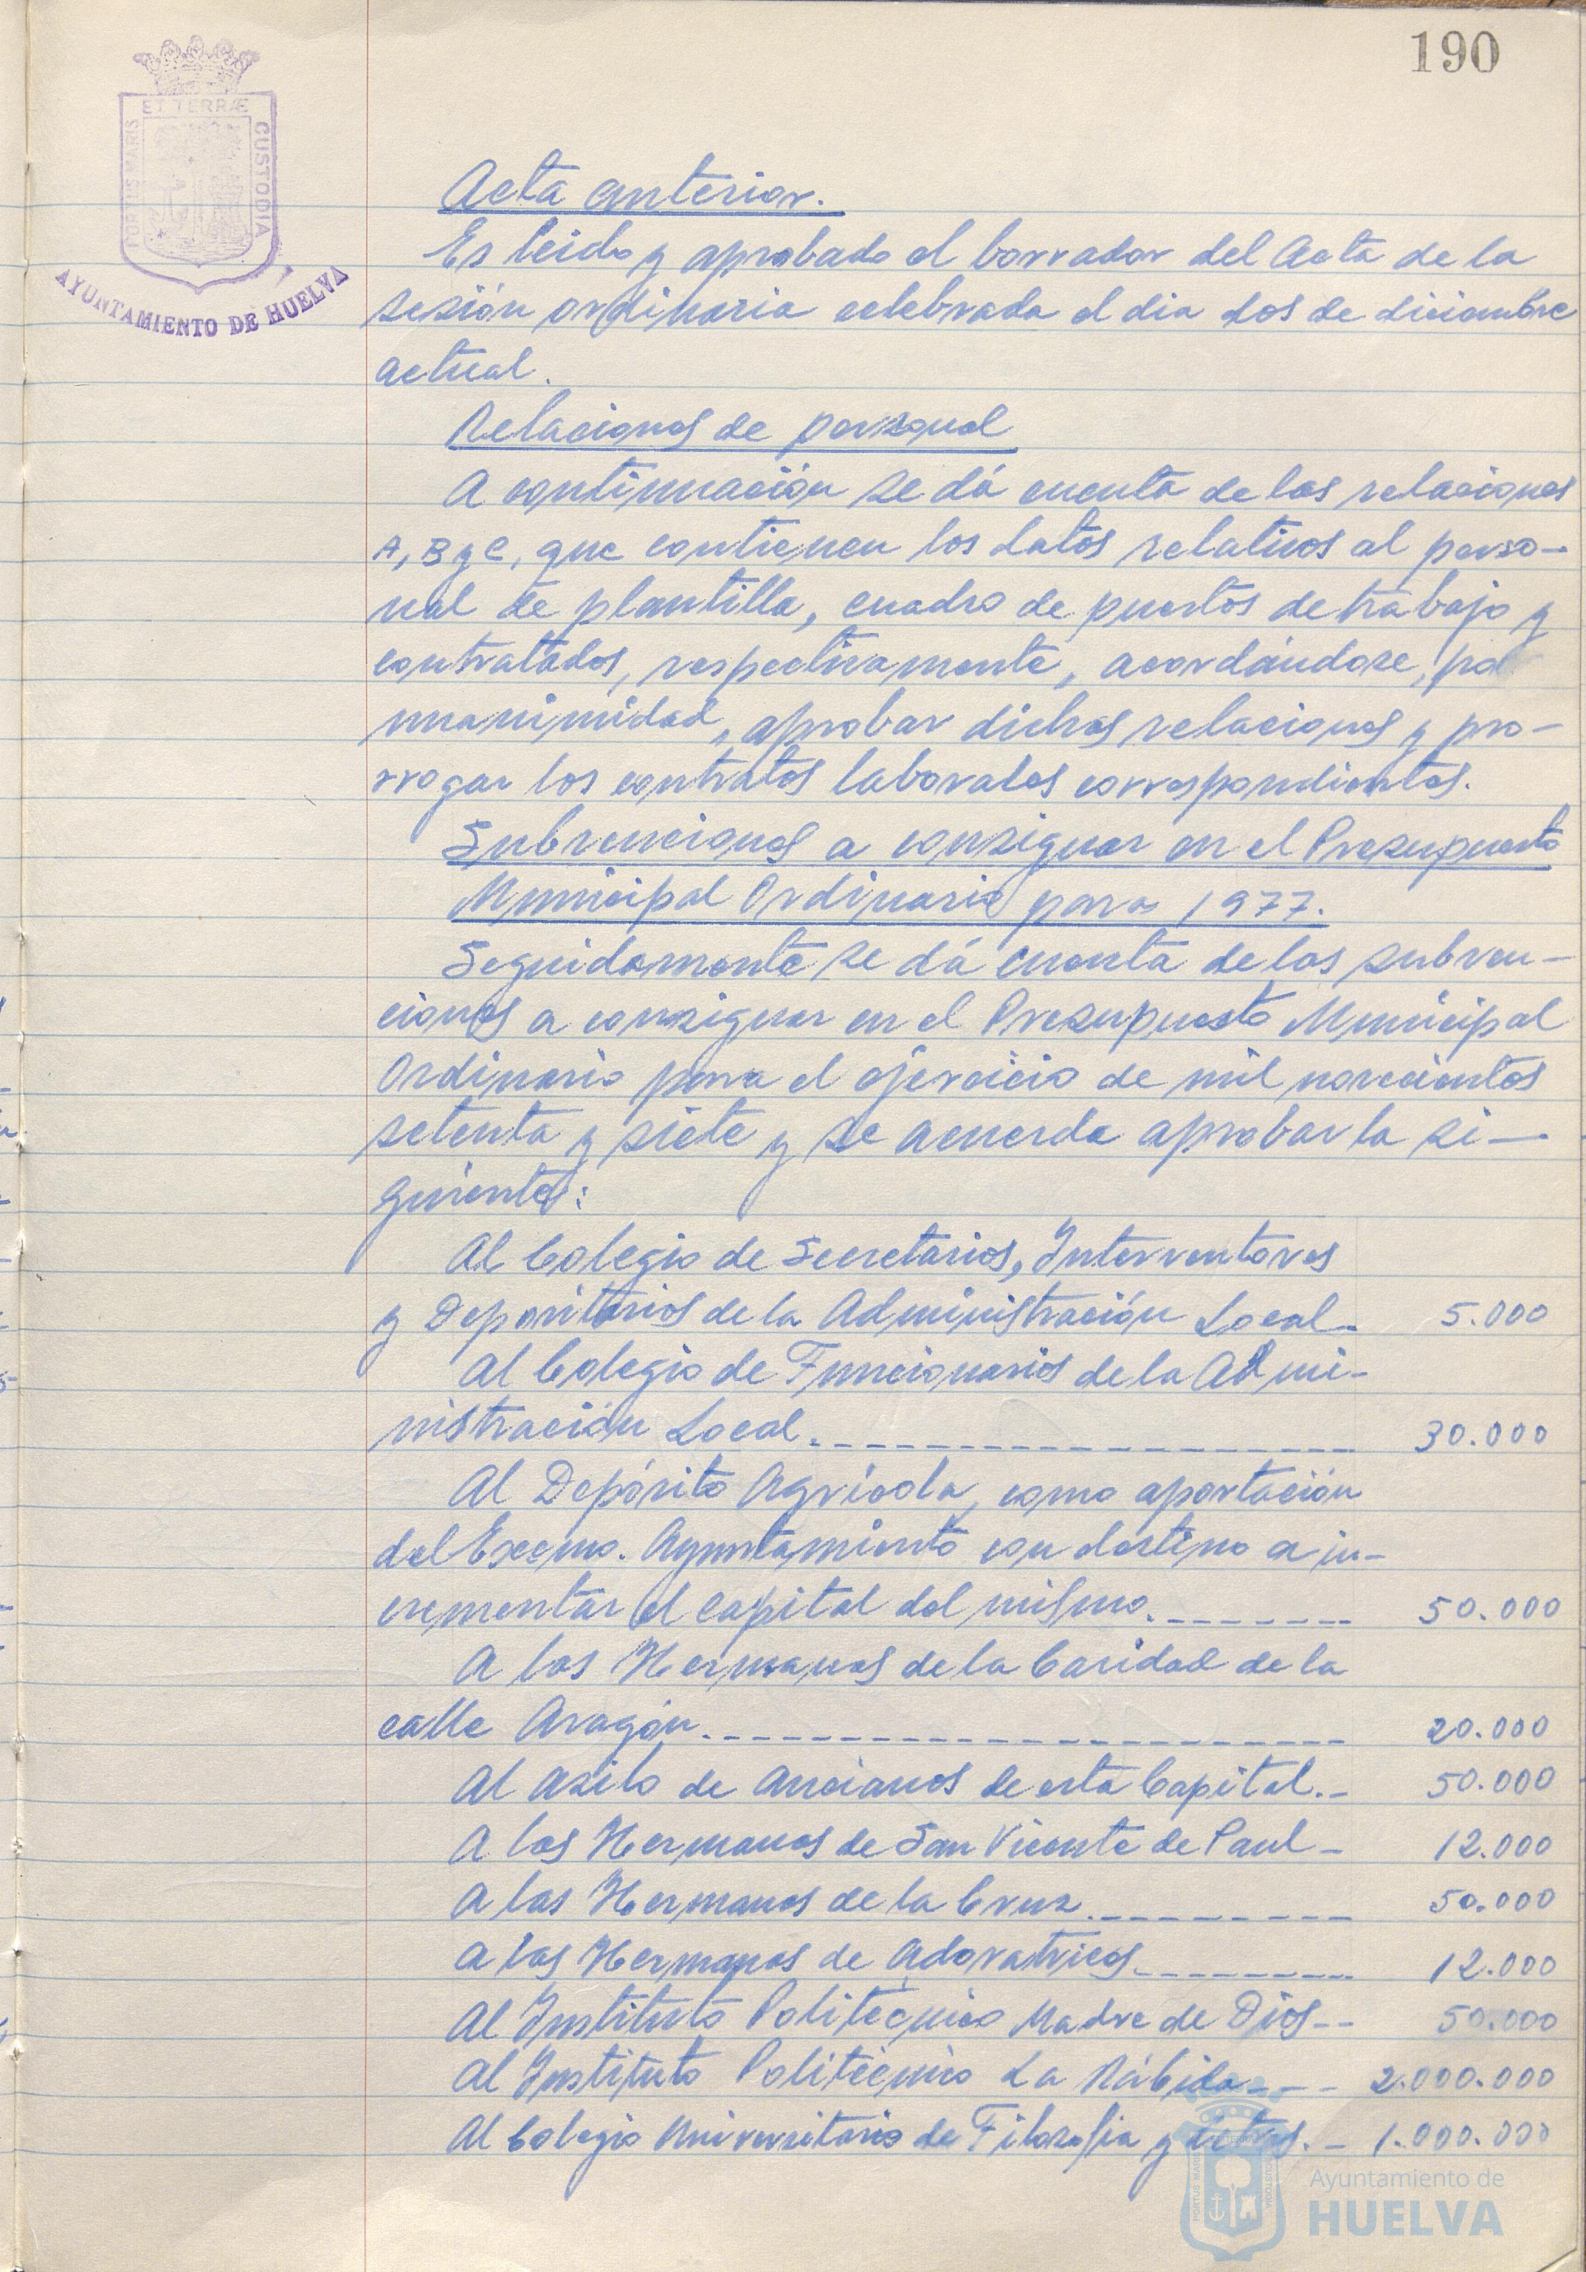 190
ET TERRÆ
PORTUS MARIS
CUSTODIA
AYUNTAMIENTO DE HUELVA
Acta anterior.
Es leido y aprobado el borrador del Acta de la
sesión ordinaria celebrada el dia dos de diciembre
actual.
Relaciones de personal
A continuación se dá cuenta de las relaciones
A, B y C, que contienen los datos relativos al perso-
nal de plantilla, cuadro de puestos de trabajo y
contratados, respectivamente, acordándose, por
unanimidad, aprobar dichas relaciones y pro-
rrogar los contratos laborales correspondientes.
Subvenciones a consignar en el Presupuesto
Municipal Ordinario para 1977.
Seguidamente se dá cuenta de las subven-
ciones a consignar en el Presupuesto Municipal
Ordinario para el ejercicio de mil novecientos
setenta y siete y se acuerda aprobar la si-
guientes:
Al Colegio de Secretarios, Interventores
y Depositarios de la Administración Local. 5.000
Al Colegio de Funcionarios de la Admi-
nistración Local. 30.000
Al Depósito Agrícola, como aportación
del Excmo. Ayuntamiento con destino a in-
crementar el capital del mismo. 50.000
A las Hermanas de la Caridad de la
calle Aragón. 20.000
Al Asilo de Ancianos de esta Capital. 50.000
A las Hermanas de San Vicente de Paul 12.000
A las Hermanas de la Cruz 50.000
A las Hermanas de Adoratrices 12.000
Al Instituto Politécnico Madre de Dios 50.000
Al Instituto Politécnico La Rábida 2.000.000
Al Colegio Universitario de Filosofia y Letras. 1.000.000
Ayuntamiento de
HUELVA